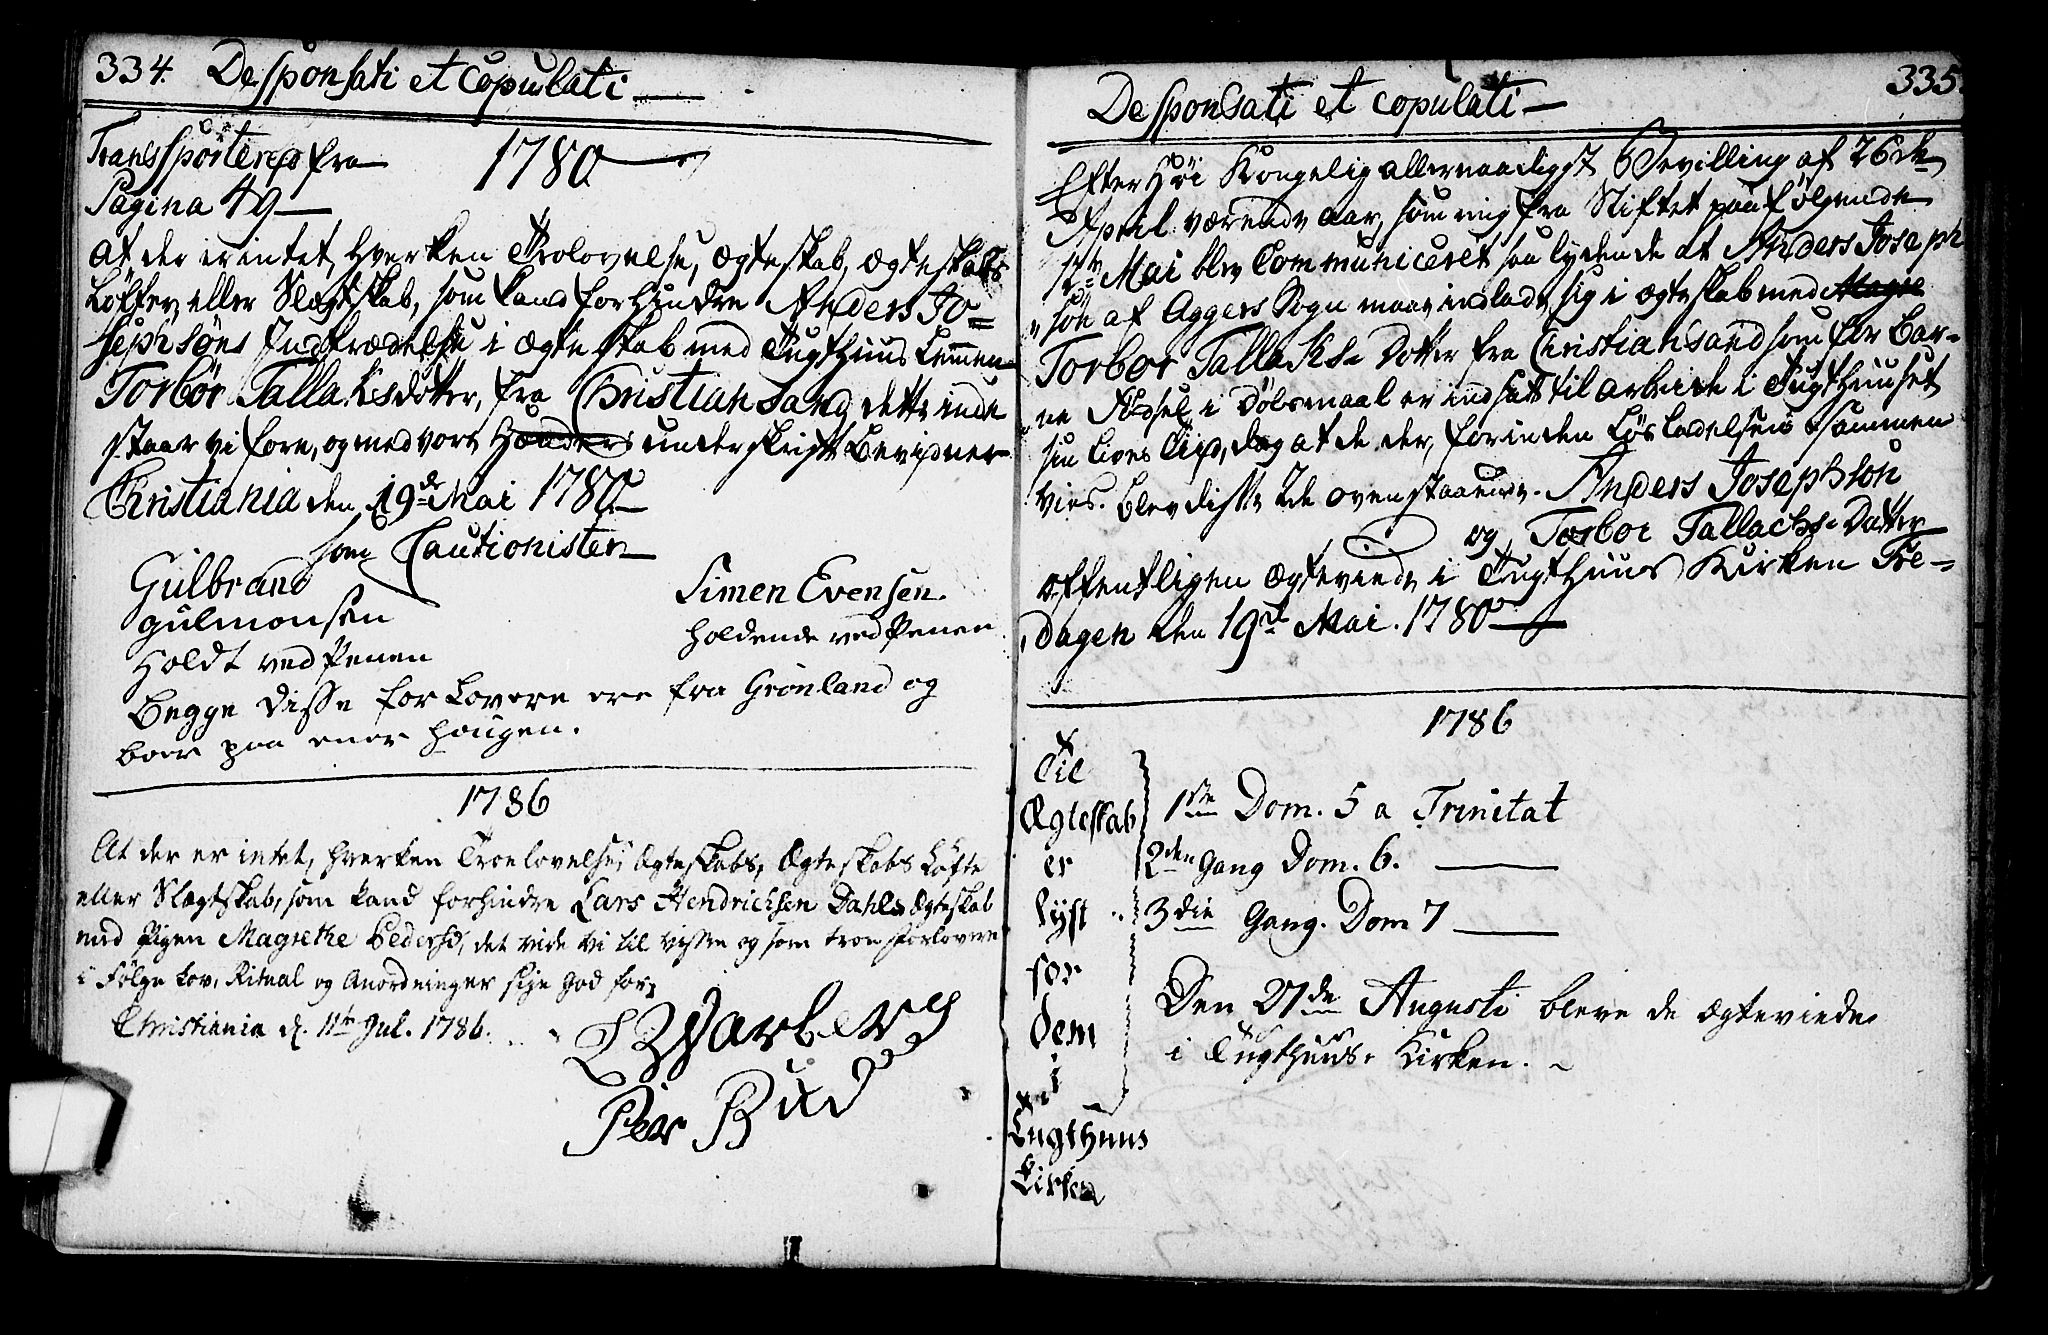 334. Desponsati et Copulati
Transporteres fra 1780
Pagina 49
at der er intet, hverken Trolovelse, Ægteskab, Ægteskabs
Løfter, eller Slægtskab, som kand forhindre Anders Jo=
sephsøns Indtrædelse i Ægteskab med Tugthuus Lemmen
Torbor Tallaksdotter, fra Christiansand, dette inde
staar vi fore, og med vore Hænders underskrift bevidner
Christiania den 19de Mai 1780
som Cautionister
Gulbrand
gulmonsen
Holdt ved Penen
Simen Evensen.
holdende ved Penen
Begge disse forlovere ere fra Grønland og
boer paa ener haugen.
1786
At der er intet, hverken Troelovelse, Ægteskabs, Ægteskabs Løfte
eller Slægtskab, som kand forhindre Lars Hendrichsen Dahls Ægteskab
med Pigen Magrethe Pedersd, det vide vi til visse og som troe Forlovere
i Følge Lov, Ritual og Anordninger sige god for
Christiania d. 11te Jul. 1786.
Per Bud
335.
Desponsati et copulati
Efter Høi Kongelig allernaadigst Bevilling af 26de
April værende aar, som mig fra Stiftet paafølgende
12te Mai blev Communiceret saa lydende at Anders Joseph
søn af Aggers Sogn maae indlade sig i Ægteskab med Magre
Torbor Tallaks= Dotter fra Christiansand som for Bar=
ne Fødsel i Dølsmaal er indsatt til arbeide i Tugthuuset
sin Lives Tiid, dog at de der, forinden Løsladelsen sammen
vies. blev disse 2de ovenstaaende. Anders Josephson
og Torbor Tallachs= Datter
offentligen Ægteviede i Tugthuus Kirken Fre=
dagen den 19de Mai. 1780
1786
Til
Ægteskab
er
lyst
for
dem
i
Tugthuus
Kirken
1ste Dom. 5 a Trinitat
2den Gang Dom. 6.
3die Gang. Dom 7
Den 27de Augusti bleve de Ægteviede
i Tugthuus= Kirken.